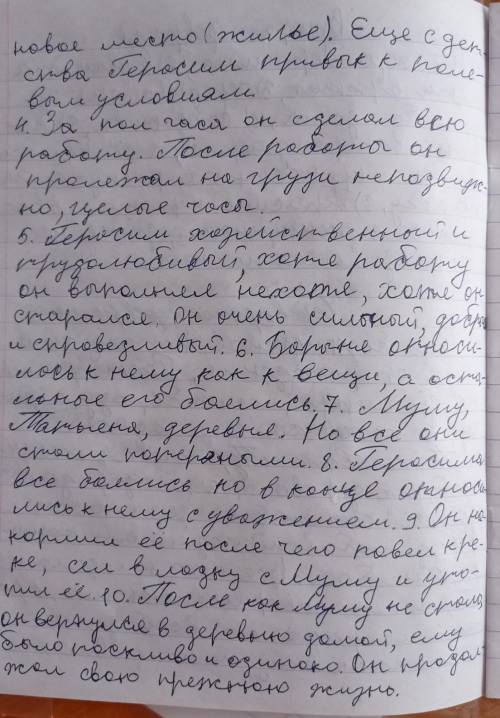 новое место (жильё). Еще с дет-
ства Герасим привык к поле-
вым условиям
4. За пол часа он сделал всю
работу. После работы он
пролежал на грузи неподвиж-
но, целые часы.
5. Герасим хозяйственный и
трудолюбивый, хотя работу
он выполнял нехотя, хотя он
старался. Он очень сильный, добры
и справезливый. 6. Барыня относи-
лось к нему как к вещи, а оста-
льные его боелись. 7. Муму,
Татьяна, деревня. Но все они
стали потеряными. 8. Герасима
все боялись но в конце относи
лись к нему с уважением. 9. Он на-
кормил её после чего повел к ре-
ке, сел в лодку с Муму и уто-
пил её. 10. После как Муму не стало,
он вернулся в деревню домой, ему
было тоскливо и одиноко. Он продол-
жал свою прежнюю жизнь.